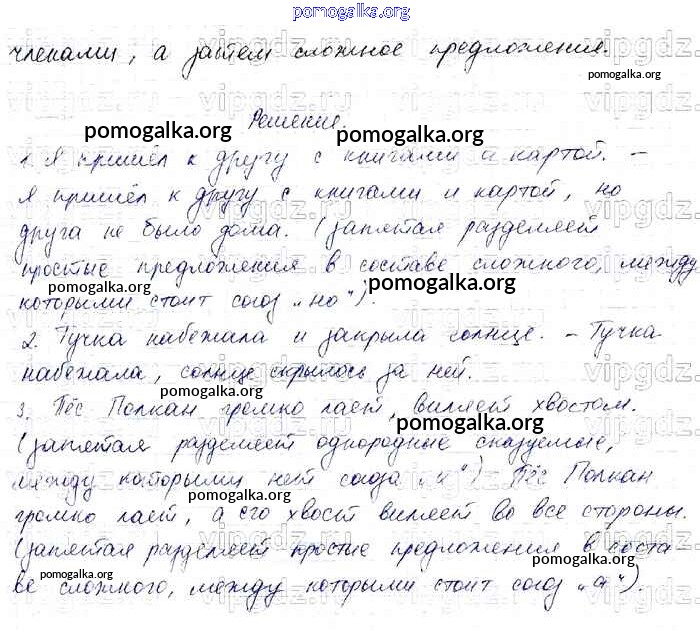 pomogalka.org
членами, а затем сложное предложения.
pomogalka.org
Решение
pomogalka.org
pomogalka.org
1. Я пришёл к другу с книгами и картой. –
Я пришёл к другу с книгами и картой, но
друга не было дома. (запятая разделяет
простые предложения в составе сложного, между
которыми стоит союз „но").
pomogalka.org
pomogalka.org
2. Тучка набежала и закрыла солнце. – Тучка
набежала, солнце скрылось за ней.
pomogalka.org
3. Пёс Полкан громко лает, виляет хвостом.
pomogalka.org
(запятая разделяет однородные сказуемые,
между которыми нет союза „и") – Пёс Полкан
pomogalka.org
громко лает, а его хвост виляет во все стороны.
(запятая разделяет простые предложения в соста
pomogalka.org
ве сложного, между которыми стоит союз „а").
pomogalka.org
pomogalka.org